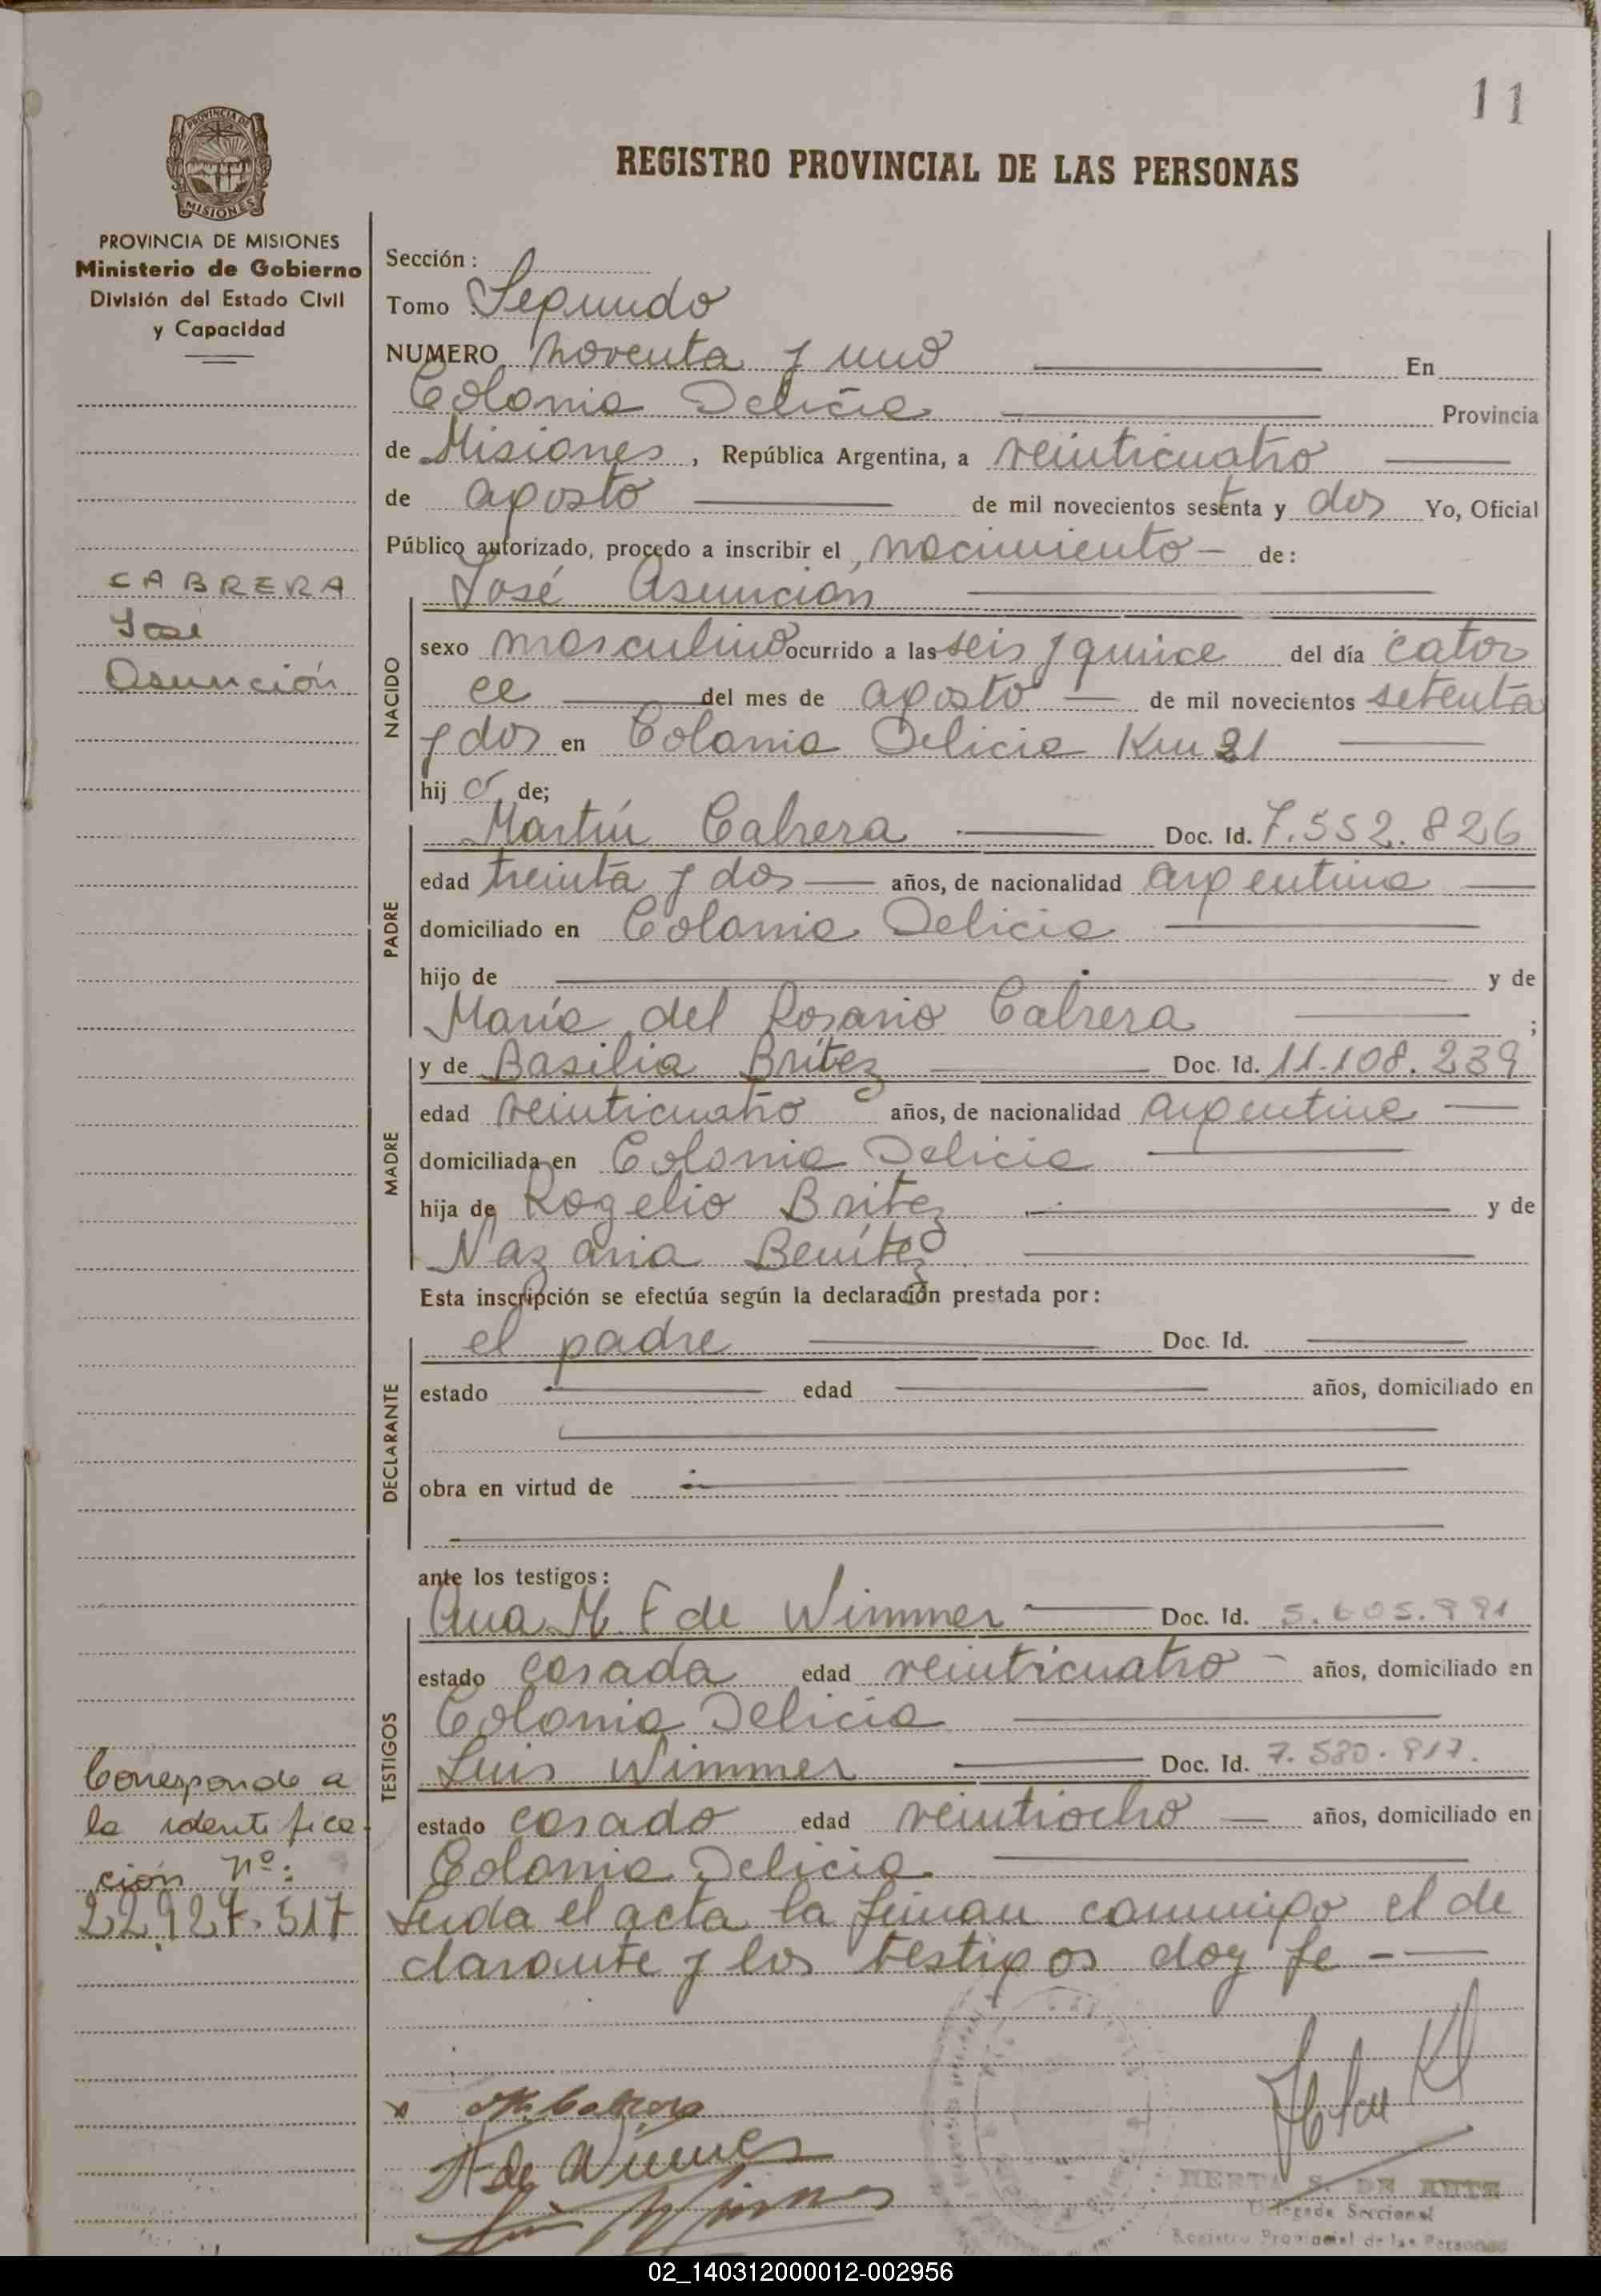 11
REGISTRO PROVINCIAL DE LAS PERSONAS
PROVINCIA DE
MISIONES
PROVINCIA DE MISIONES
Ministerio de Gobierno
División del Estado Civil
y Capacidad
CABRERA
José
Asunción
Corresponde a
la identifica
ción nº:
22.927.517
Sección:
Tomo Segundo
NUMERO noventa y uno En
Colonia Delicia Provincia
de Misiones, República Argentina, a veinticuatro
de agosto de mil novecientos sesenta y dos Yo, Oficial
Público autorizado, procedo a inscribir el nacimiento de:
NACIDO
José Asunción
sexo masculino ocurrido a las seis y quince del día cator
ce del mes de agosto de mil novecientos setenta
y dos en Colonia Delicia Km 21
hij o de;
PADRE
Martín Cabrera Doc. Id. 7.552.826
edad treinta y dos años, de nacionalidad argentina
domiciliado en Colonia Delicia
hijo de y de
María del Rosario Cabrera ;
MADRE
y de Basilia Brítez Doc. Id. 11.108.239
edad veinticuatro años, de nacionalidad argentina
domiciliada en Colonia Delicia
hija de Rogelio Britez y de
Nazaria Benítez
Esta inscripción se efectúa según la declaración prestada por:
DECLARANTE
el padre Doc. Id.
estado edad años, domiciliado en
obra en virtud de
ante los testigos:
TESTIGOS
Ana M. F de Wimmer Doc. Id. 5.605.991
estado casada edad veinticuatro años, domiciliado en
Colonia Delicia
Luis Wimmer Doc. Id. 7.580.917.
estado casado edad veintiocho años, domiciliado en
Colonia Delicia
Leida el acta la firman conmigo el de
clarante y los testigos doy fe
x M. Cabrera
A de Wimmer
HERTA S. DE
Delegada Seccional
Registro Provincial de las Personas
02_140312000012-002956